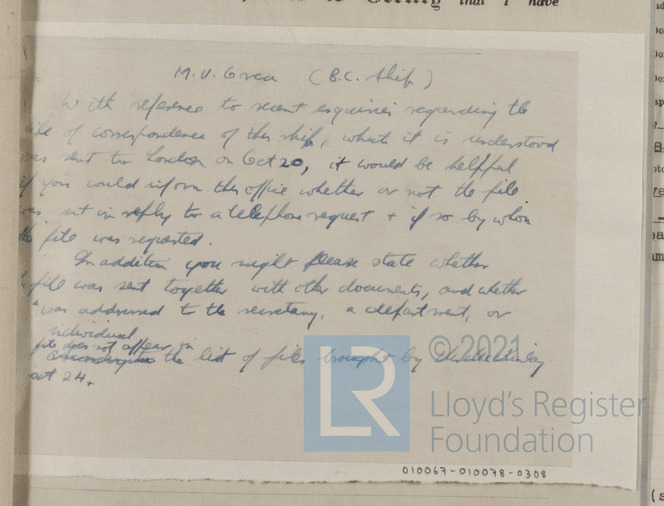 that I have
M.V. (B.C. ship)
With reference to recent enquiries regarding the
file of correspondence of this ship, which it is understood
was sent to London on Oct 20, it would be helpful
if you would inform this office whether or not the file
was sent in reply to a telephone request + if so by whom
the file was requested.
In addition you might please state whether
file was sent together with other documents, and whether
was addressed to the secretary, a department, or
individual.
file does not appear in
the list of files brought by
oct 24.
© 2021
LR
Lloyd's Register
Foundation
010067-010078-0308